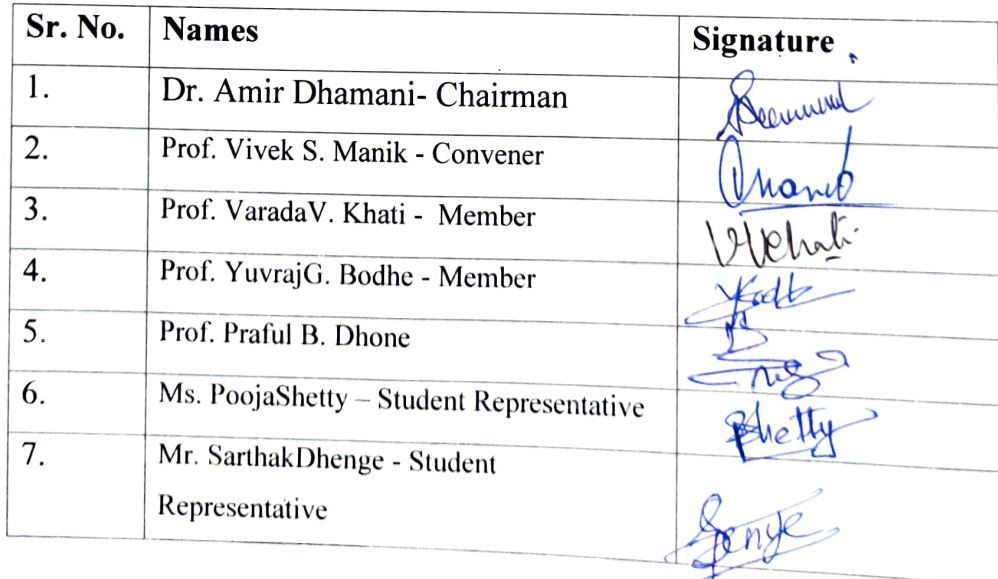 Sr. No. Names Signature
1. Dr. Amir Dhamani- Chairman
2. Prof. Vivek S. Manik - Convener
3. Prof. VaradaV. Khati - Member VVKhati
4. Prof. YuvrajG. Bodhe - Member
5. Prof. Praful B. Dhone
6. Ms. PoojaShetty – Student Representative PShetty
7. Mr. SarthakDhenge - Student
Representative